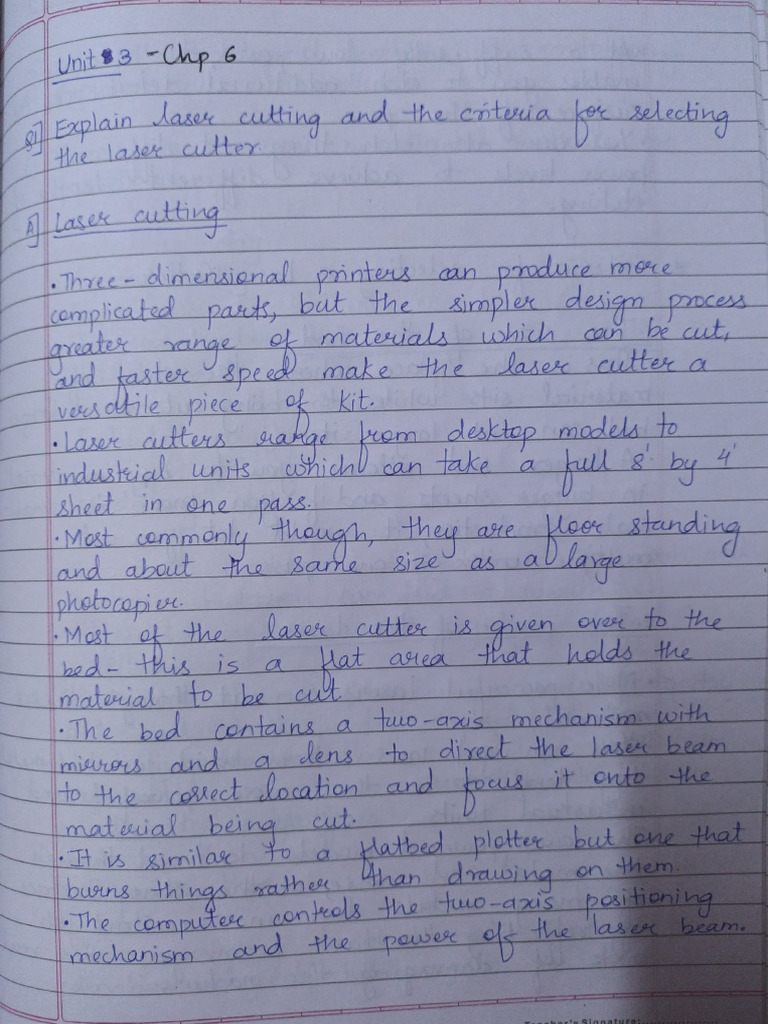 Unit 3 - Chp 6
Q1] Explain laser cutting and the criteria for selecting
the laser cutter.
A] Laser cutting
• Three - dimensional printers can produce more
complicated parts, but the simpler design process
greater range of materials which can be cut,
and faster speed make the laser cutter a
versatile piece of kit.
• Laser cutters range from desktop models to
industrial units which can take a full 8' by 4'
sheet in one pass.
• Most commonly though, they are floor standing
and about the same size as a large
photocopier.
• Most of the laser cutter is given over to the
bed - this is a flat area that holds the
material to be cut
• The bed contains a two-axis mechanism with
mirrors and a lens to direct the laser beam
to the correct location and focus it onto the
material being cut.
• It is similar to a flatbed plotter but one that
burns things rather than drawing on them.
• The computer controls the two-axis positioning
mechanism and the power of the laser beam.
Teacher's Signature: